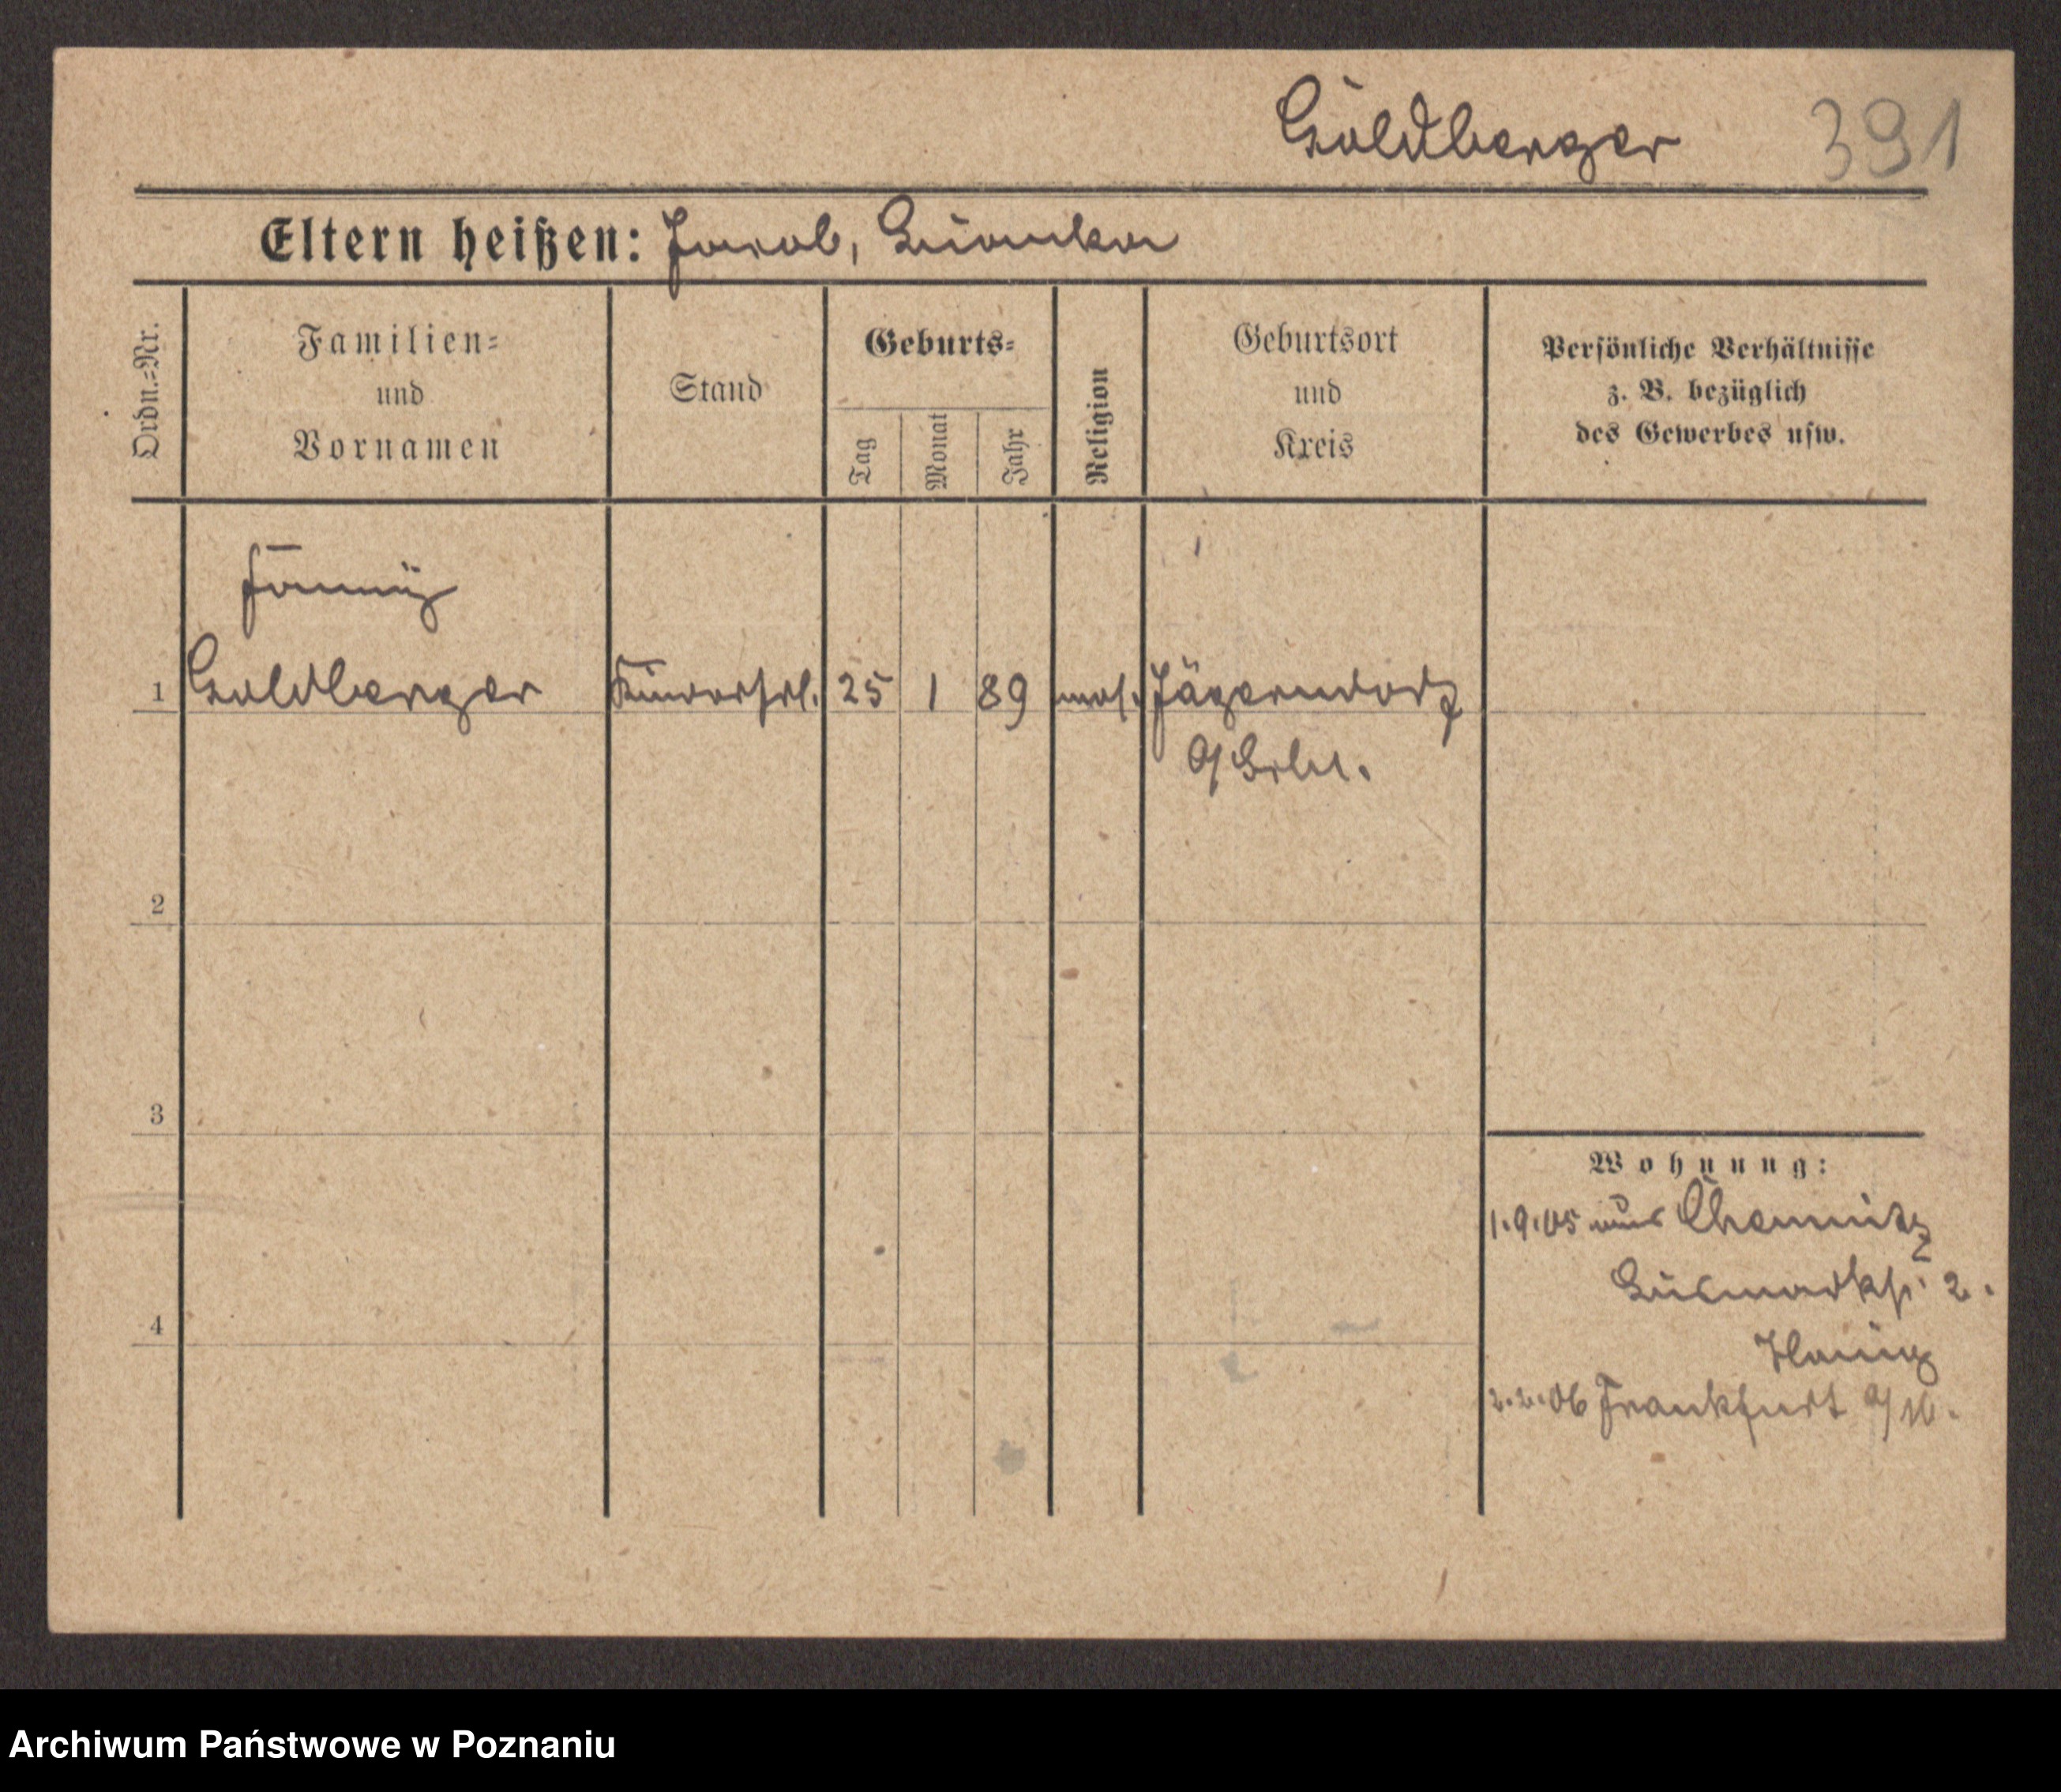 Goldberger 391
Eltern heißen: Jacob, Bianka
Ordn.=Nr.
Familien=
und
Vornamen
Stand
Geburts=
Tag
Monat
Jahr
Religion
Geburtsort
und
Kreis
Persönliche Verhältnisse
z. B. bezüglich
des Gewerbes usw.
Fanny
1 Goldberger Kinderfrl. 25 1 89 mos. Jägerndorf
2
3
4
Wohnung:
1.9.05 aus Chemnitz
Bismarkstr. 2.
2.2.06 Frankfurt a/M.
Archiwum Państwowe w Poznaniu